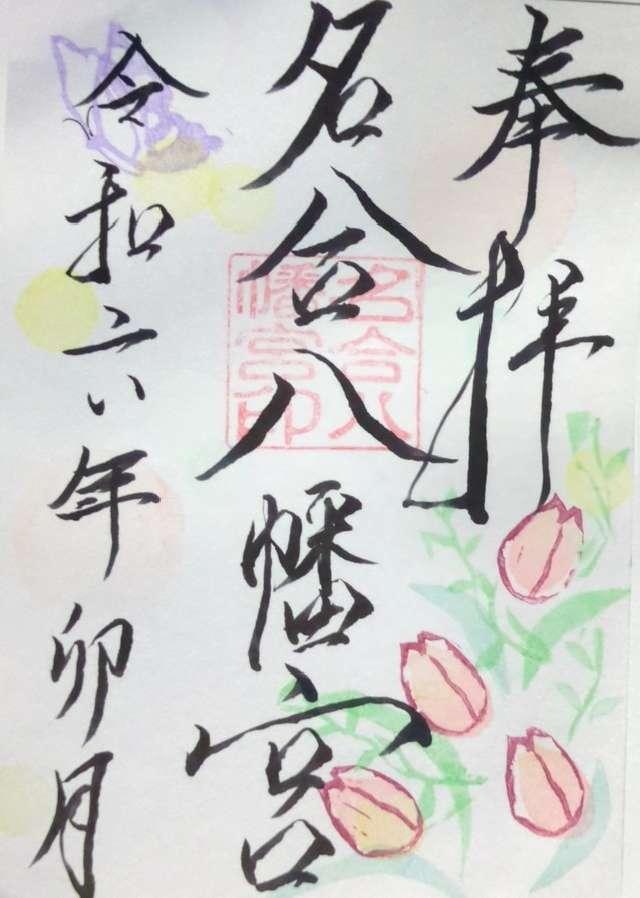 奉拝
名合八幡宮
令和六年卯月
名合八
幡宮印